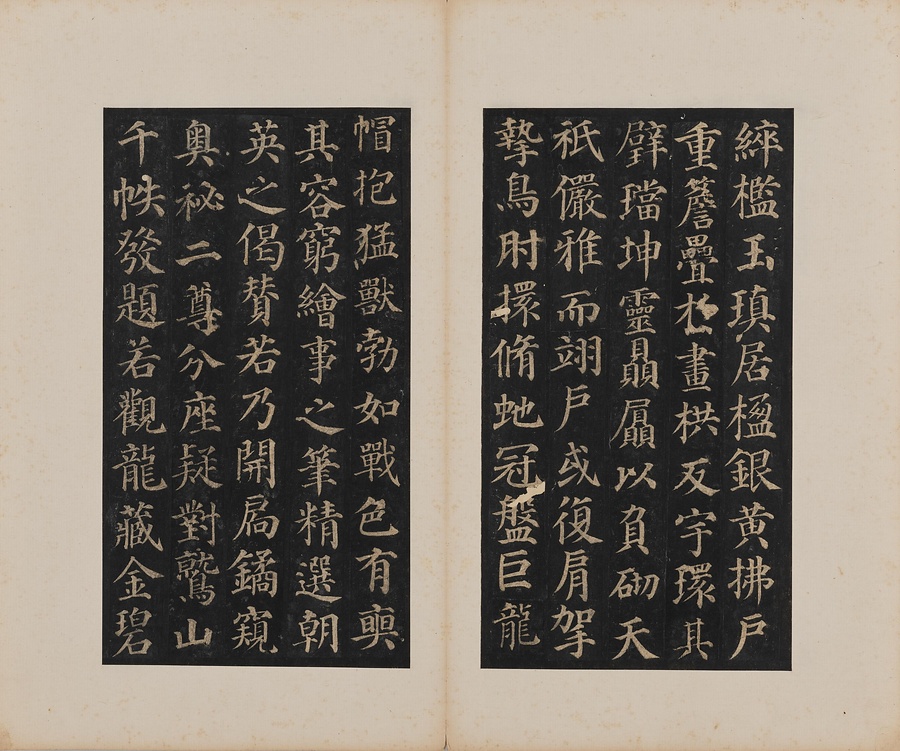 繂檻玉瑱居楹銀黄拂戶
重簷疊扵畫栱反宇環其
壁璫坤靈贔屭以負砌天
祇儼雅而翊戶或復肩挐
摯鳥肘擐脩虵冠盤巨龍
帽抱猛獸勃如戰色有奭
其容窮繪事之筆精選朝
英之偈贊若乃開扃鐍窺
奥祕二尊分座疑對鷲山
千帙發題若觀龍藏金碧